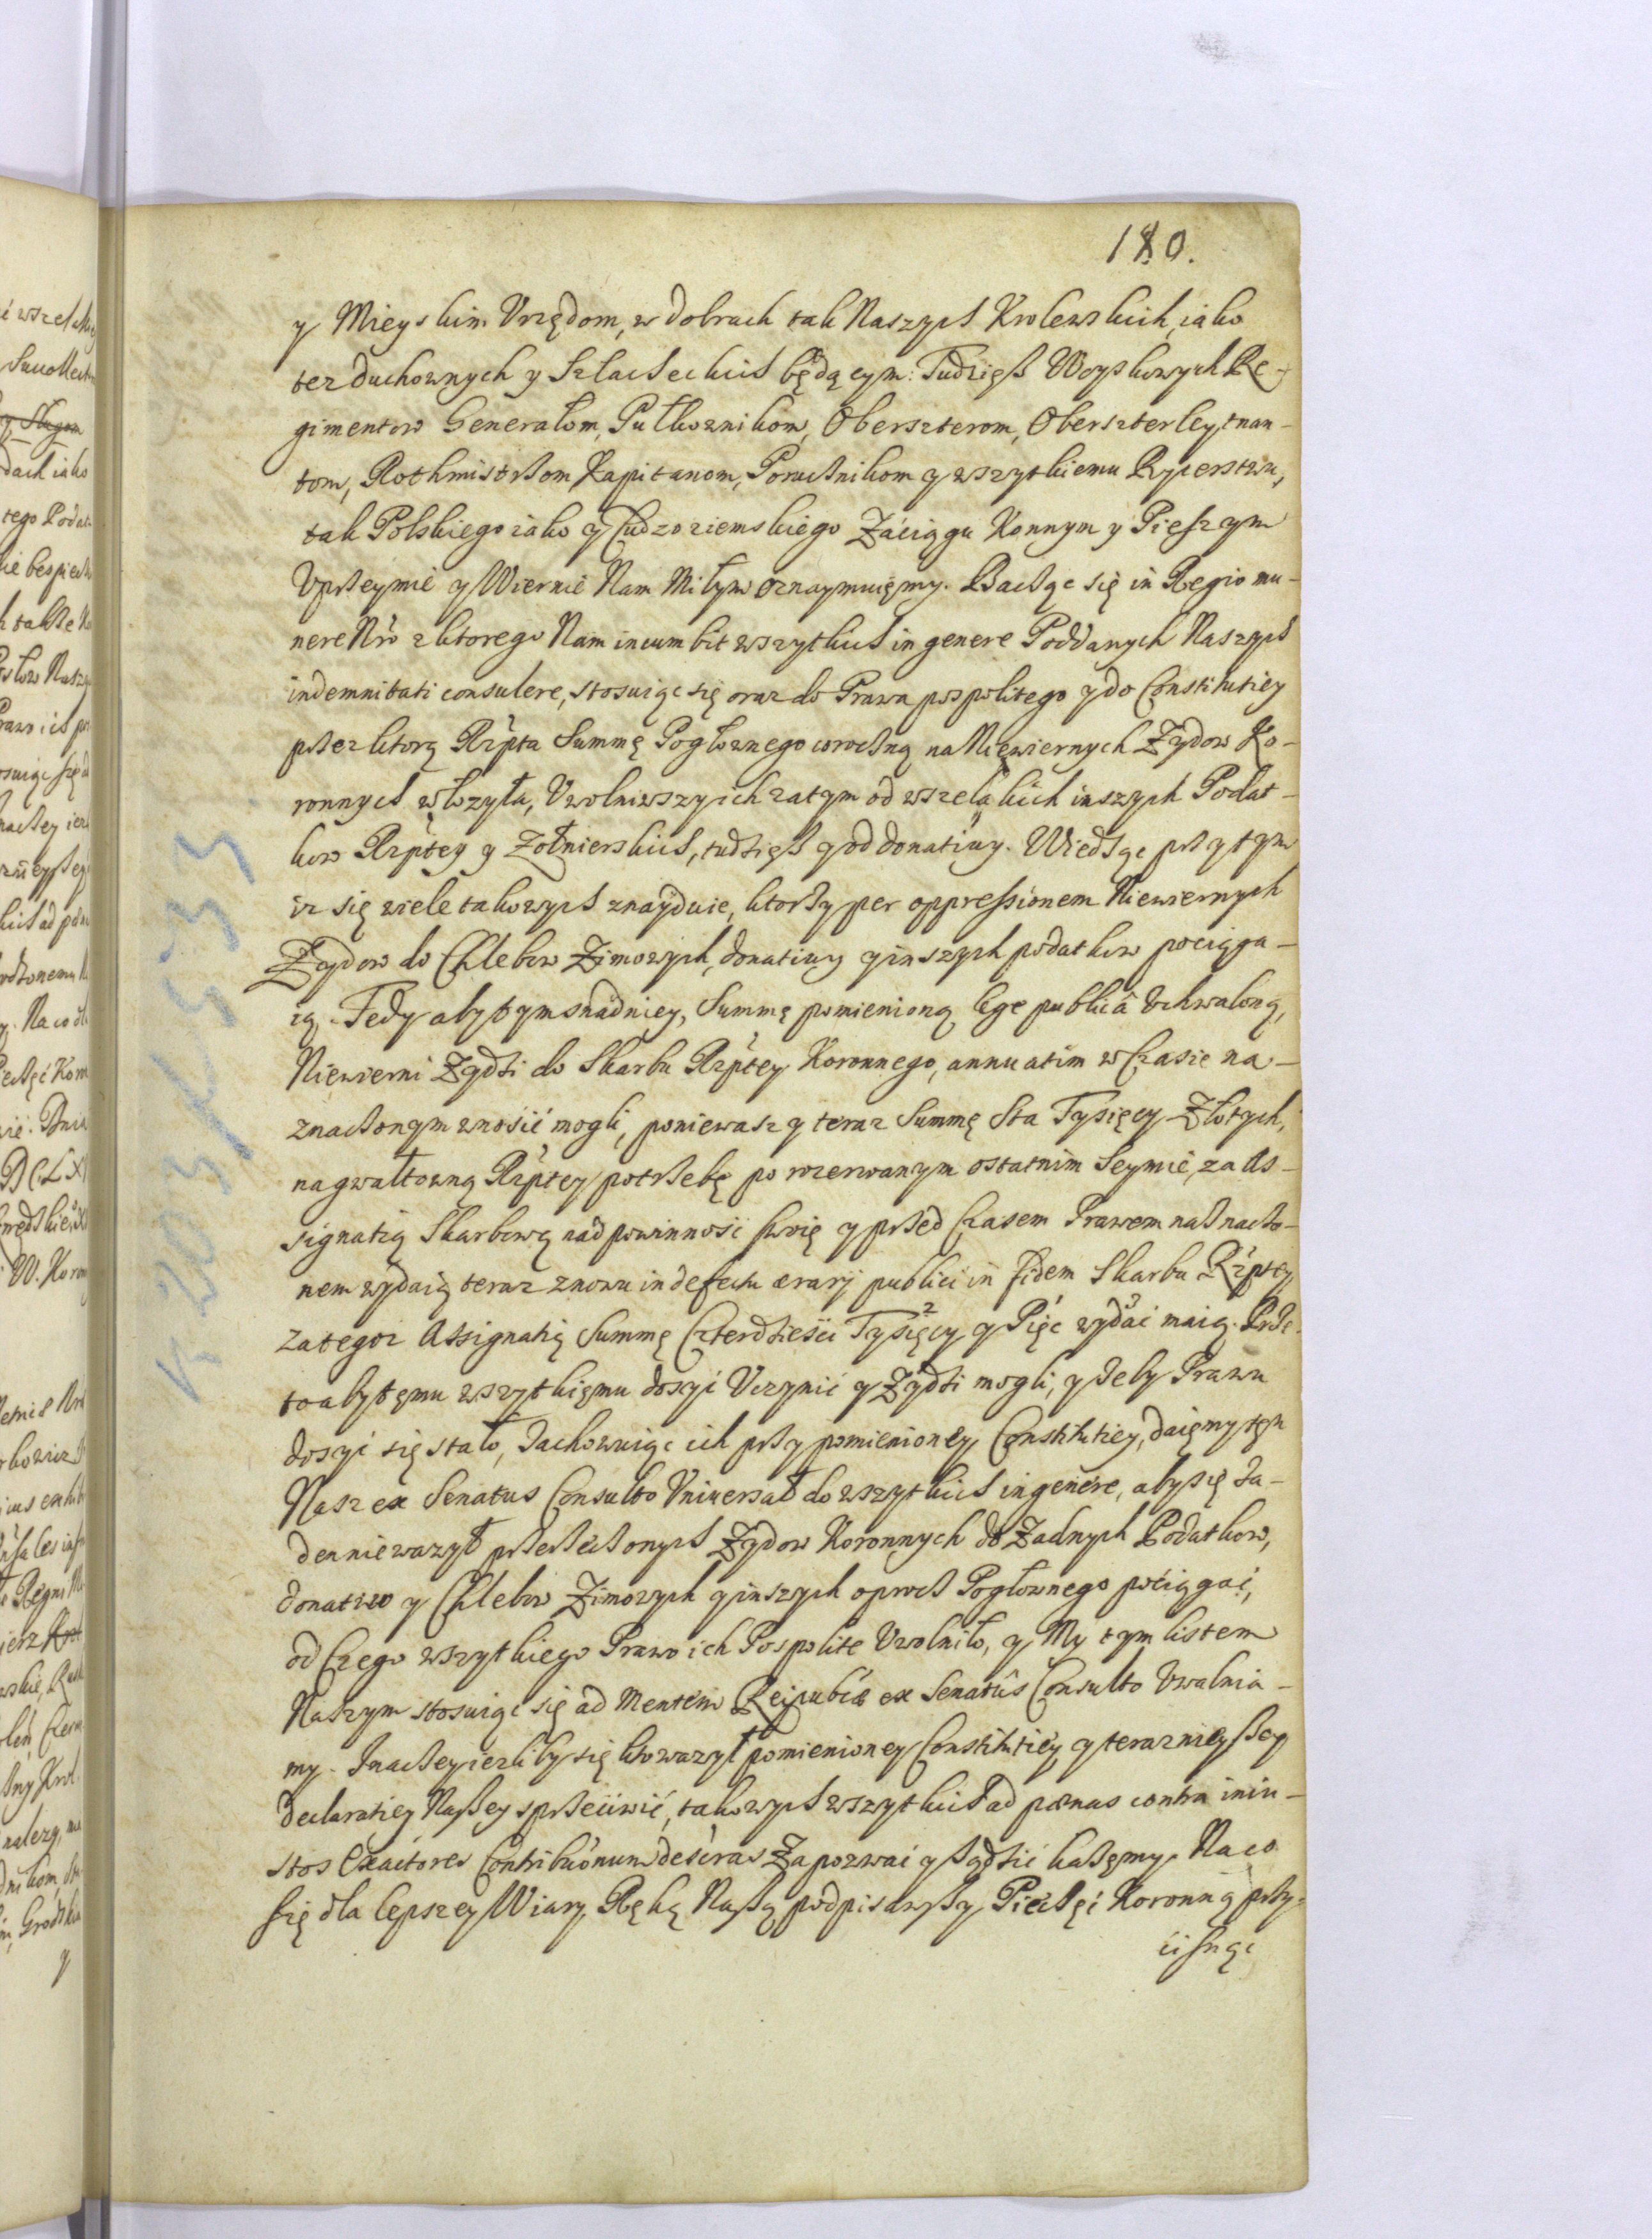 180.
y Mieyskim Vrzędom, w dobrach tak Naszych Krolewskich, iako
tez duchownych y Szlacheckich będącym: Tudzięß Woyskowych Re-
gimentow Generałom, Pułkownikom, Oberszterom, Oberszterleytnan-
tom, Rothmistrzom, Kapitanom, Porucznikom y wszytkiemu Rycerstwu,
tak Polskiego iako y Cudzoziemskiego Záciągu Konnym y Pieszym
Vprzeymie y Wiernie Nam Miłym oznaymuięmy. Bacząc się in Regio mu-
nere Nrô z ktorego Nam incumbit wszytkich in genere Poddanych Naszych
indemnitati consulere, stosuiąc się oraz do Prawa pospolitego y do Constitutiey
przez ktorą Rzpta Summę Pogłownego coroczną na Niewiernych Zydow Ko-
ronnych włozyła, Vwolniwszy ich zatym od wszelakich inszych Podat-
kow Rzptey y Zołnierskich, tudzięß y od donatiwy. Wiedząc przytym
iz się wiele takowych znayduie, ktorzy per oppreßionem Niewiernych
Zydow do Chlebow Zimowych, donatiwy y inszych podatkow pociąga-
ią. Tedy aby tym snádniey, Summę pomienioną lege publicâ Vchwaloną,
Niewierni Zydzi do Skarbu Rzptey Koronnego, annuatim w Czasie na-
znaczonym wnosić mogli, poniewasz y teraz Summę Sta Tysięcy Złotych,
na gwałtowną Rzptey potrzebę po rozerwanym ostatnim Seymie, za As-
signatią Skarbową nád powinność swoię y przed Czasem Prawem naznaczo-
nem wydaią teraz znowu in defectu ærarij publici in fidem Skarbu Rzptey
za tegoz Assignatią Summę Czterdzieści Tysięcy y Pięć wydać maią. Prze-
to aby tęmu wszytkięmu dosyć Vczynić y Zydzi mogli, y zeby Prawu
dosyć się stało, Zachowuiąc ich przy pomienioney Constitutiey, daięmy tęn
Nasz ex Senatus Consulto Vniwersał do wszytkich in genere, aby się Za-
den nie wazył przerzeczonych Zydow Koronnych do Zadnych Podatkow,
donatiw y Chlebow Zimowych y inszych oprocz Pogłownego pociągać,
od Czego wszytkiego Prawo ich Pospolite Vwolniło, y My tym listem
Naszym stosuiąc się ad Mentem Reipubcæ ex Senatûs Consulto Vwalnia-
my. Inaczey iezliby się kto wazył pomienioney Constitutiey y teraznieyßey
declaratiey Naßey sprzeciwić, takowych wszytkich ad pœnas contra iniu-
stos Exactores Contributionum descras Zapozwać y sądzić kazęmy. Na co
się dla lepszey Wiary, Ręką Naßą podpisawßy, Pieczęć Koronną przy-
cisnąć